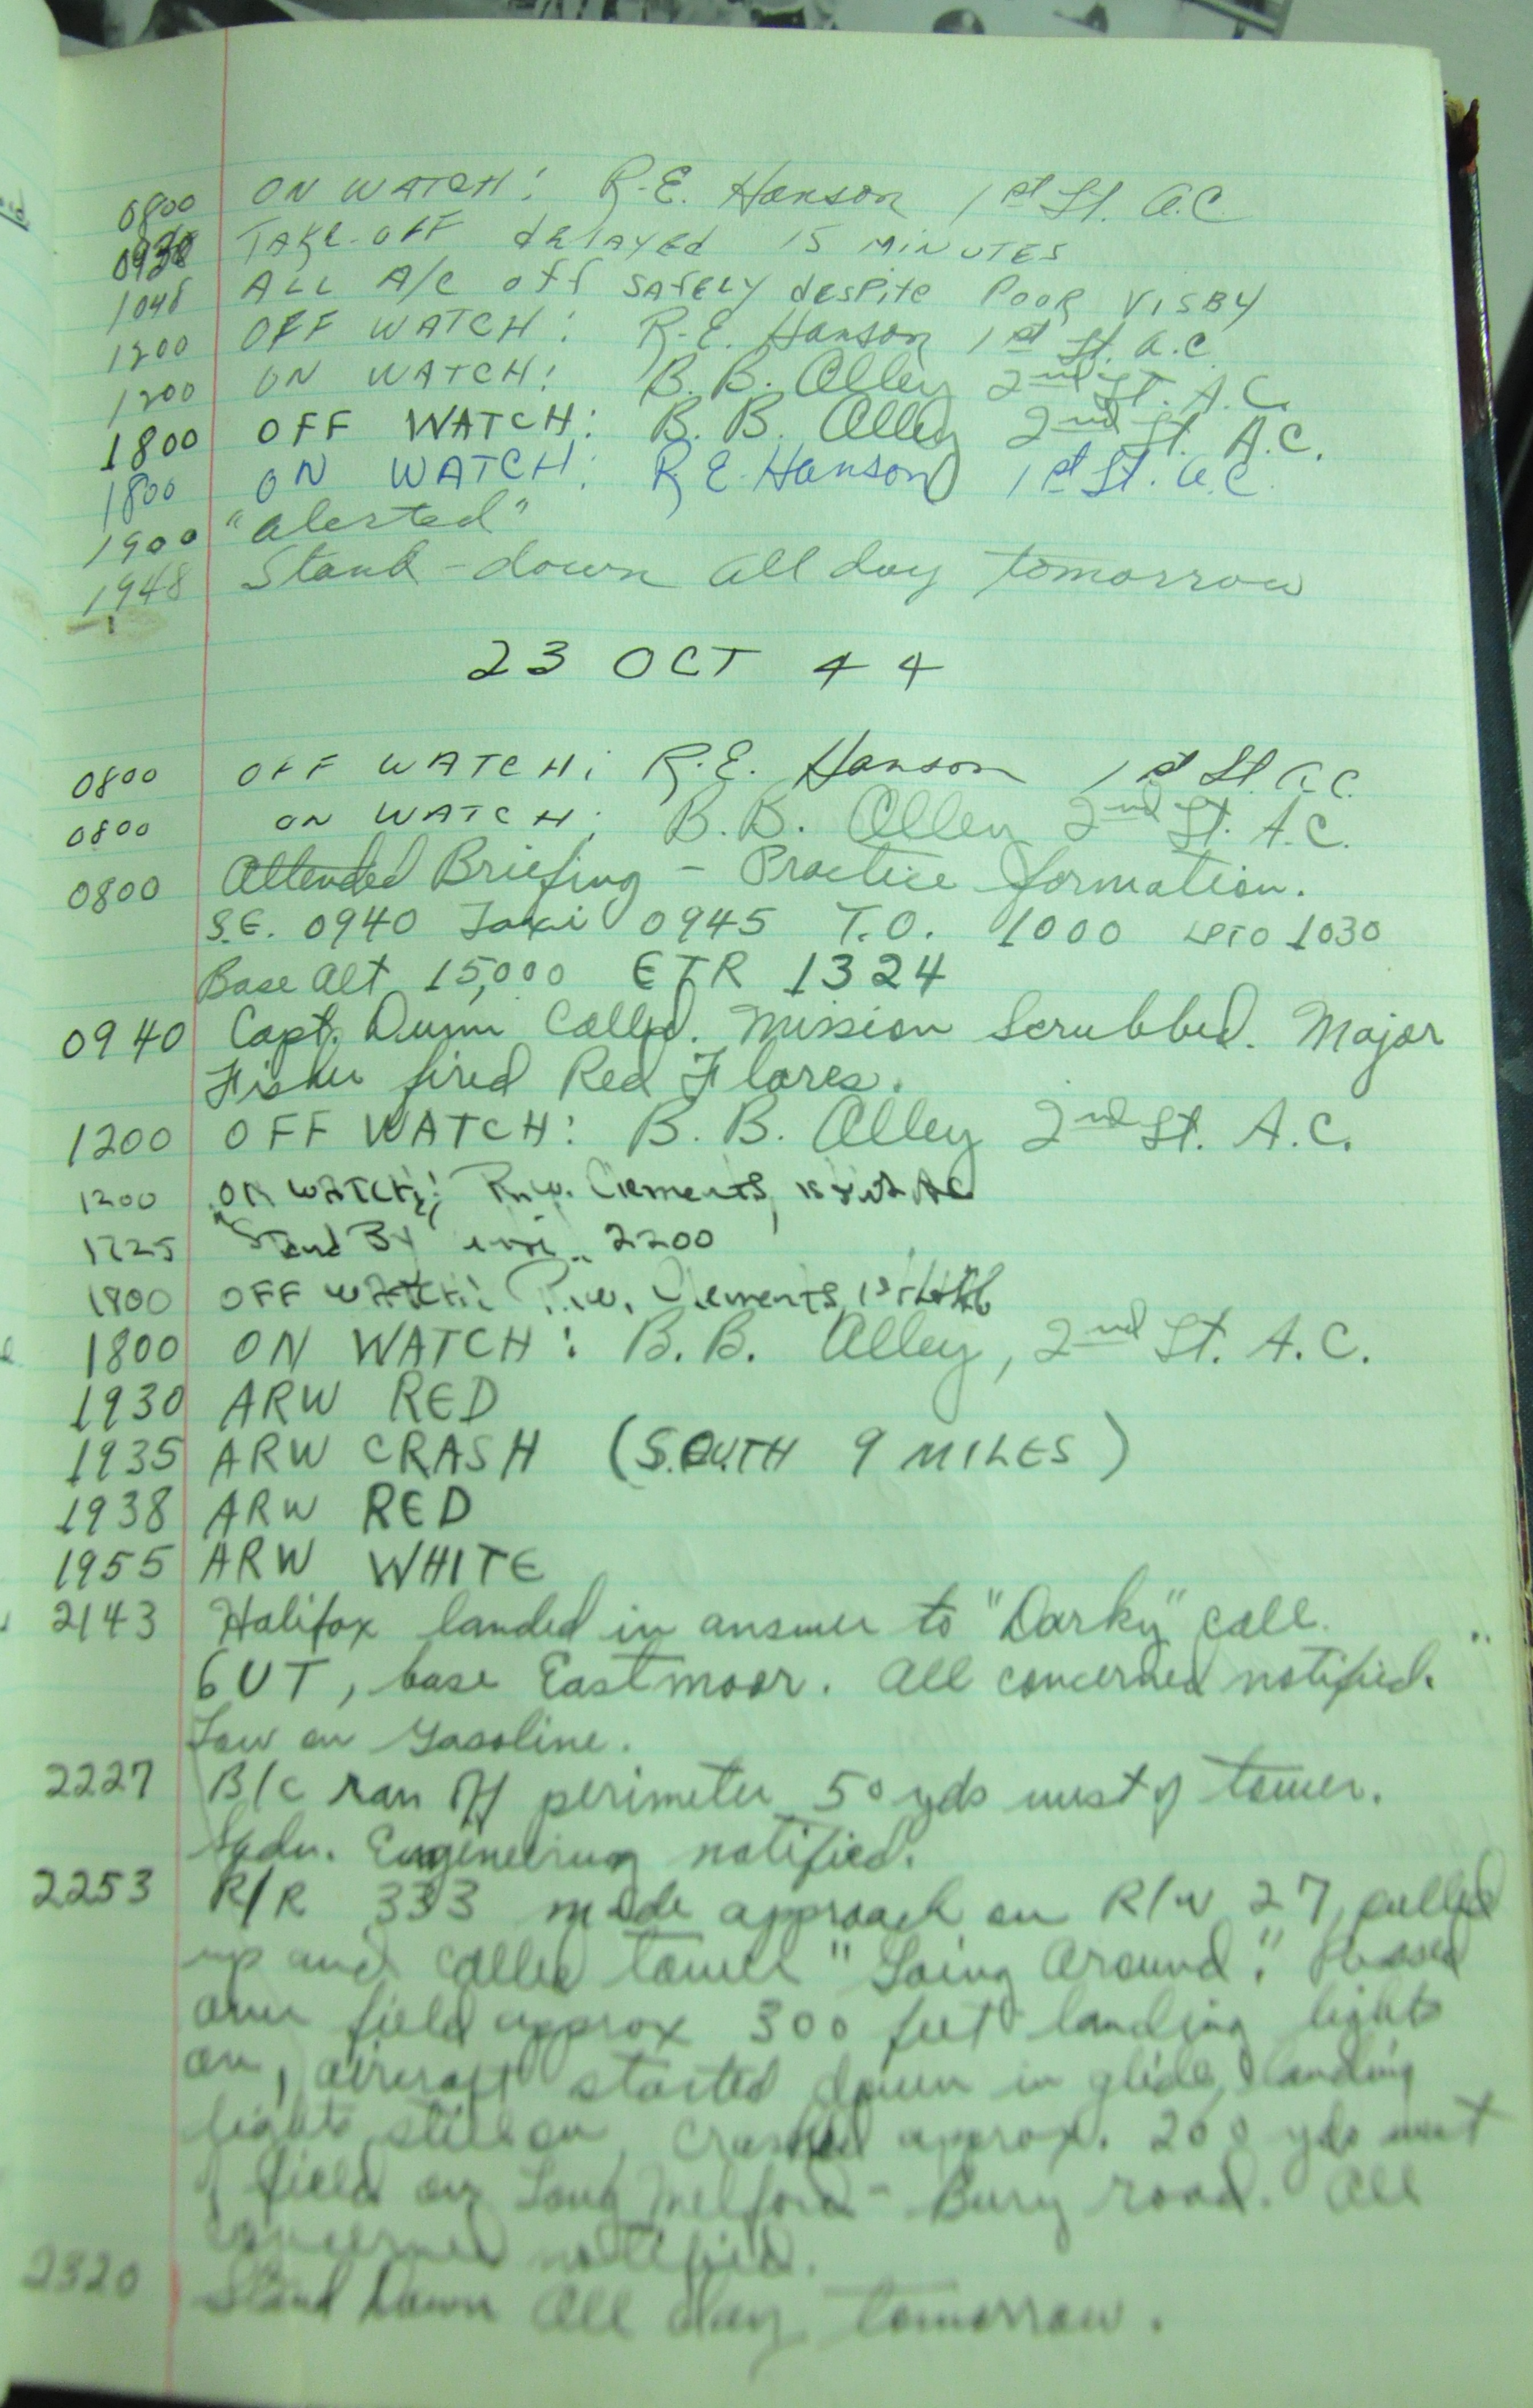 0800 ON WATCH: R.E. Hanson 1st Lt. A.C.
0930 TAKE-OFF delAYEd 15 MINUTES
1048 ALL A/C off SAFELY despite POOR VISBY
1200 OFF WATCH: R.E. Hanson 1st Lt. A.C.
1200 ON WATCH: B.B. Alley 2nd Lt. A.C.
1800 OFF WATCH: B.B. Alley 2nd Lt. A.C.
1800 ON WATCH: R.E. Hanson 1st Lt. A.C.
1900 "Alerted"
1948 Stand-down all day tomorrow
23 OCT 44
0800 OFF WATCH: R.E. Hanson 1st Lt. A.C.
0800 ON WATCH: B.B. Alley 2nd Lt. A.C.
0800 Attended Briefing - Practice formation.
S.E. 0940 Taxi 0945 T.O. 1000 LPTO 1030
Base Alt 15,000 ETR 1324
0940 Capt. Dunn Called. Mission Scrubbed. Major
Fisher fired Red Flares.
1200 OFF WATCH: B.B. Alley 2nd Lt. A.C.
1200 ON WATCH: R.W. Clements, 1st Lt AC
1725 "Stand By" 2200
1800 OFF WATCH: R.W. Clements, 1st Lt AC
1800 ON WATCH: B.B. Alley, 2nd Lt. A.C.
1930 ARW RED
1935 ARW CRASH (SOUTH 9 MILES)
1938 ARW RED
1955 ARW WHITE
2143 Halifax landed in answer to "Darky" call.
6UT, base Eastmoor. All concerned notified.
Low on Gasoline.
2227 B/C ran off perimeter 50 yds west of tower.
Sqdn. Engineering notified.
2253 R/R 333 made approach on R/W 27, pulled
up and called tower "Going Around". Passed
over field approx 300 feet landing lights
on, aircraft started down in glide, landing
lights still on, crashed approx. 200 yds west
of field on Long Melford - Bury road. All
concerned notified.
2320 Stand Down all day tomorrow.